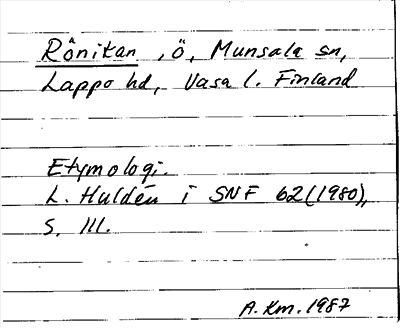 Rönikan, ö, Munsala sn,
Lappo hd, Vasa l. Finland
Etymologi.
L. Huldén i SNF 62 (1980),
s. 111.
A. Km. 1987